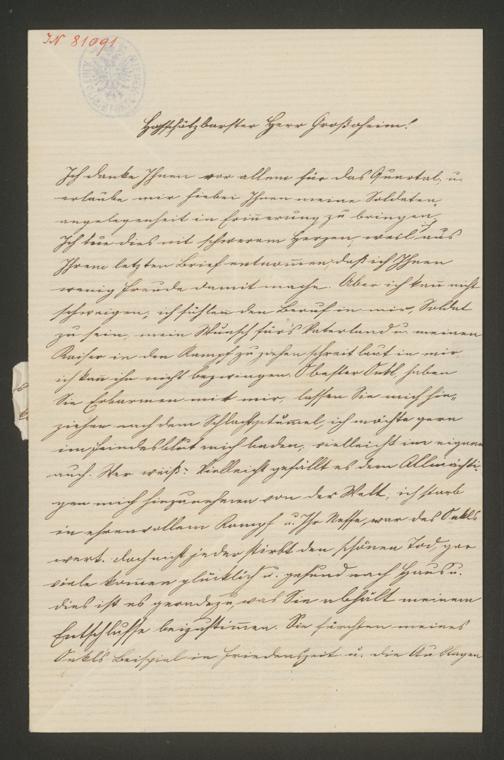 IN 81091
Hochschätzbarster Herr Großoheim!
Ich danke Ihnen vor allem für das Quartal, u.
erlaube mir hiebei Ihnen meine Soldaten,
angelegenheit in Erinnerung zu bringen.
Ich tue dies mit schwerem Herzen, weil aus
Ihrem letzten Brief entnommen, daß ich Ihnen
wenig Freude damit mache. Aber ich kann nicht
schweigen, ich fühle den Beruf in mir, Soldat
zu sein, mein Wunsch für's Vaterland u. meinen
Kaiser in den Kampf zu ziehen schreit laut in mir,
ich kann ihn nicht bezwingen. Onkel haben
Sie Erbarmen mit mir, lassen Sie mich hin,
ziehen nach dem Schlachtgetümmel, ich möchte gern
im Feindesblut mich baden, vielleicht im eigenen
auch. Wer weiß? Vielleicht gefällt es dem Allmächti-
gen mich hinzunehmen von der Welt, ich starb
in ehrenvollem Kampf u. Ihr Neffe war des Onkels
wert. doch nicht jeder stirbt den schönen Tod, gar
viele kommen glücklich u. gesund nach Haus u.
dies ist es geradezu was Sie abhält meinem
Entschlusse beizustimmen. Sie fürchten meines
Onkels Beispiel in Friedenszeit u. die Auslagen